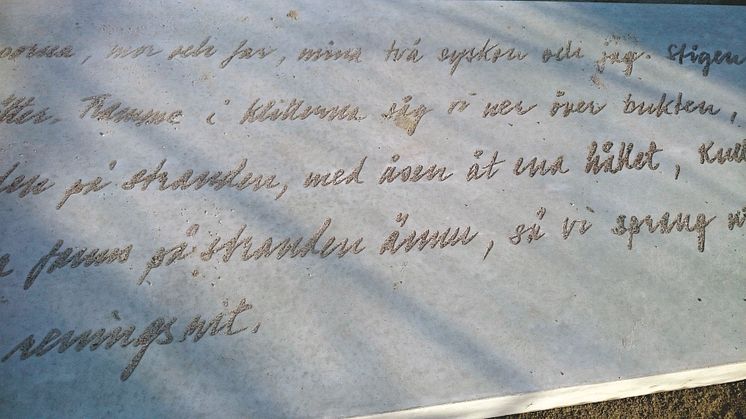 mor och far, mina två syskon och jag. Stigen
Framme i klitterna såg vi ner över bukten,
på stranden, med åsen åt ena hållet, Kull
fanns på stranden ännu, så vi sprang
meningsvit.